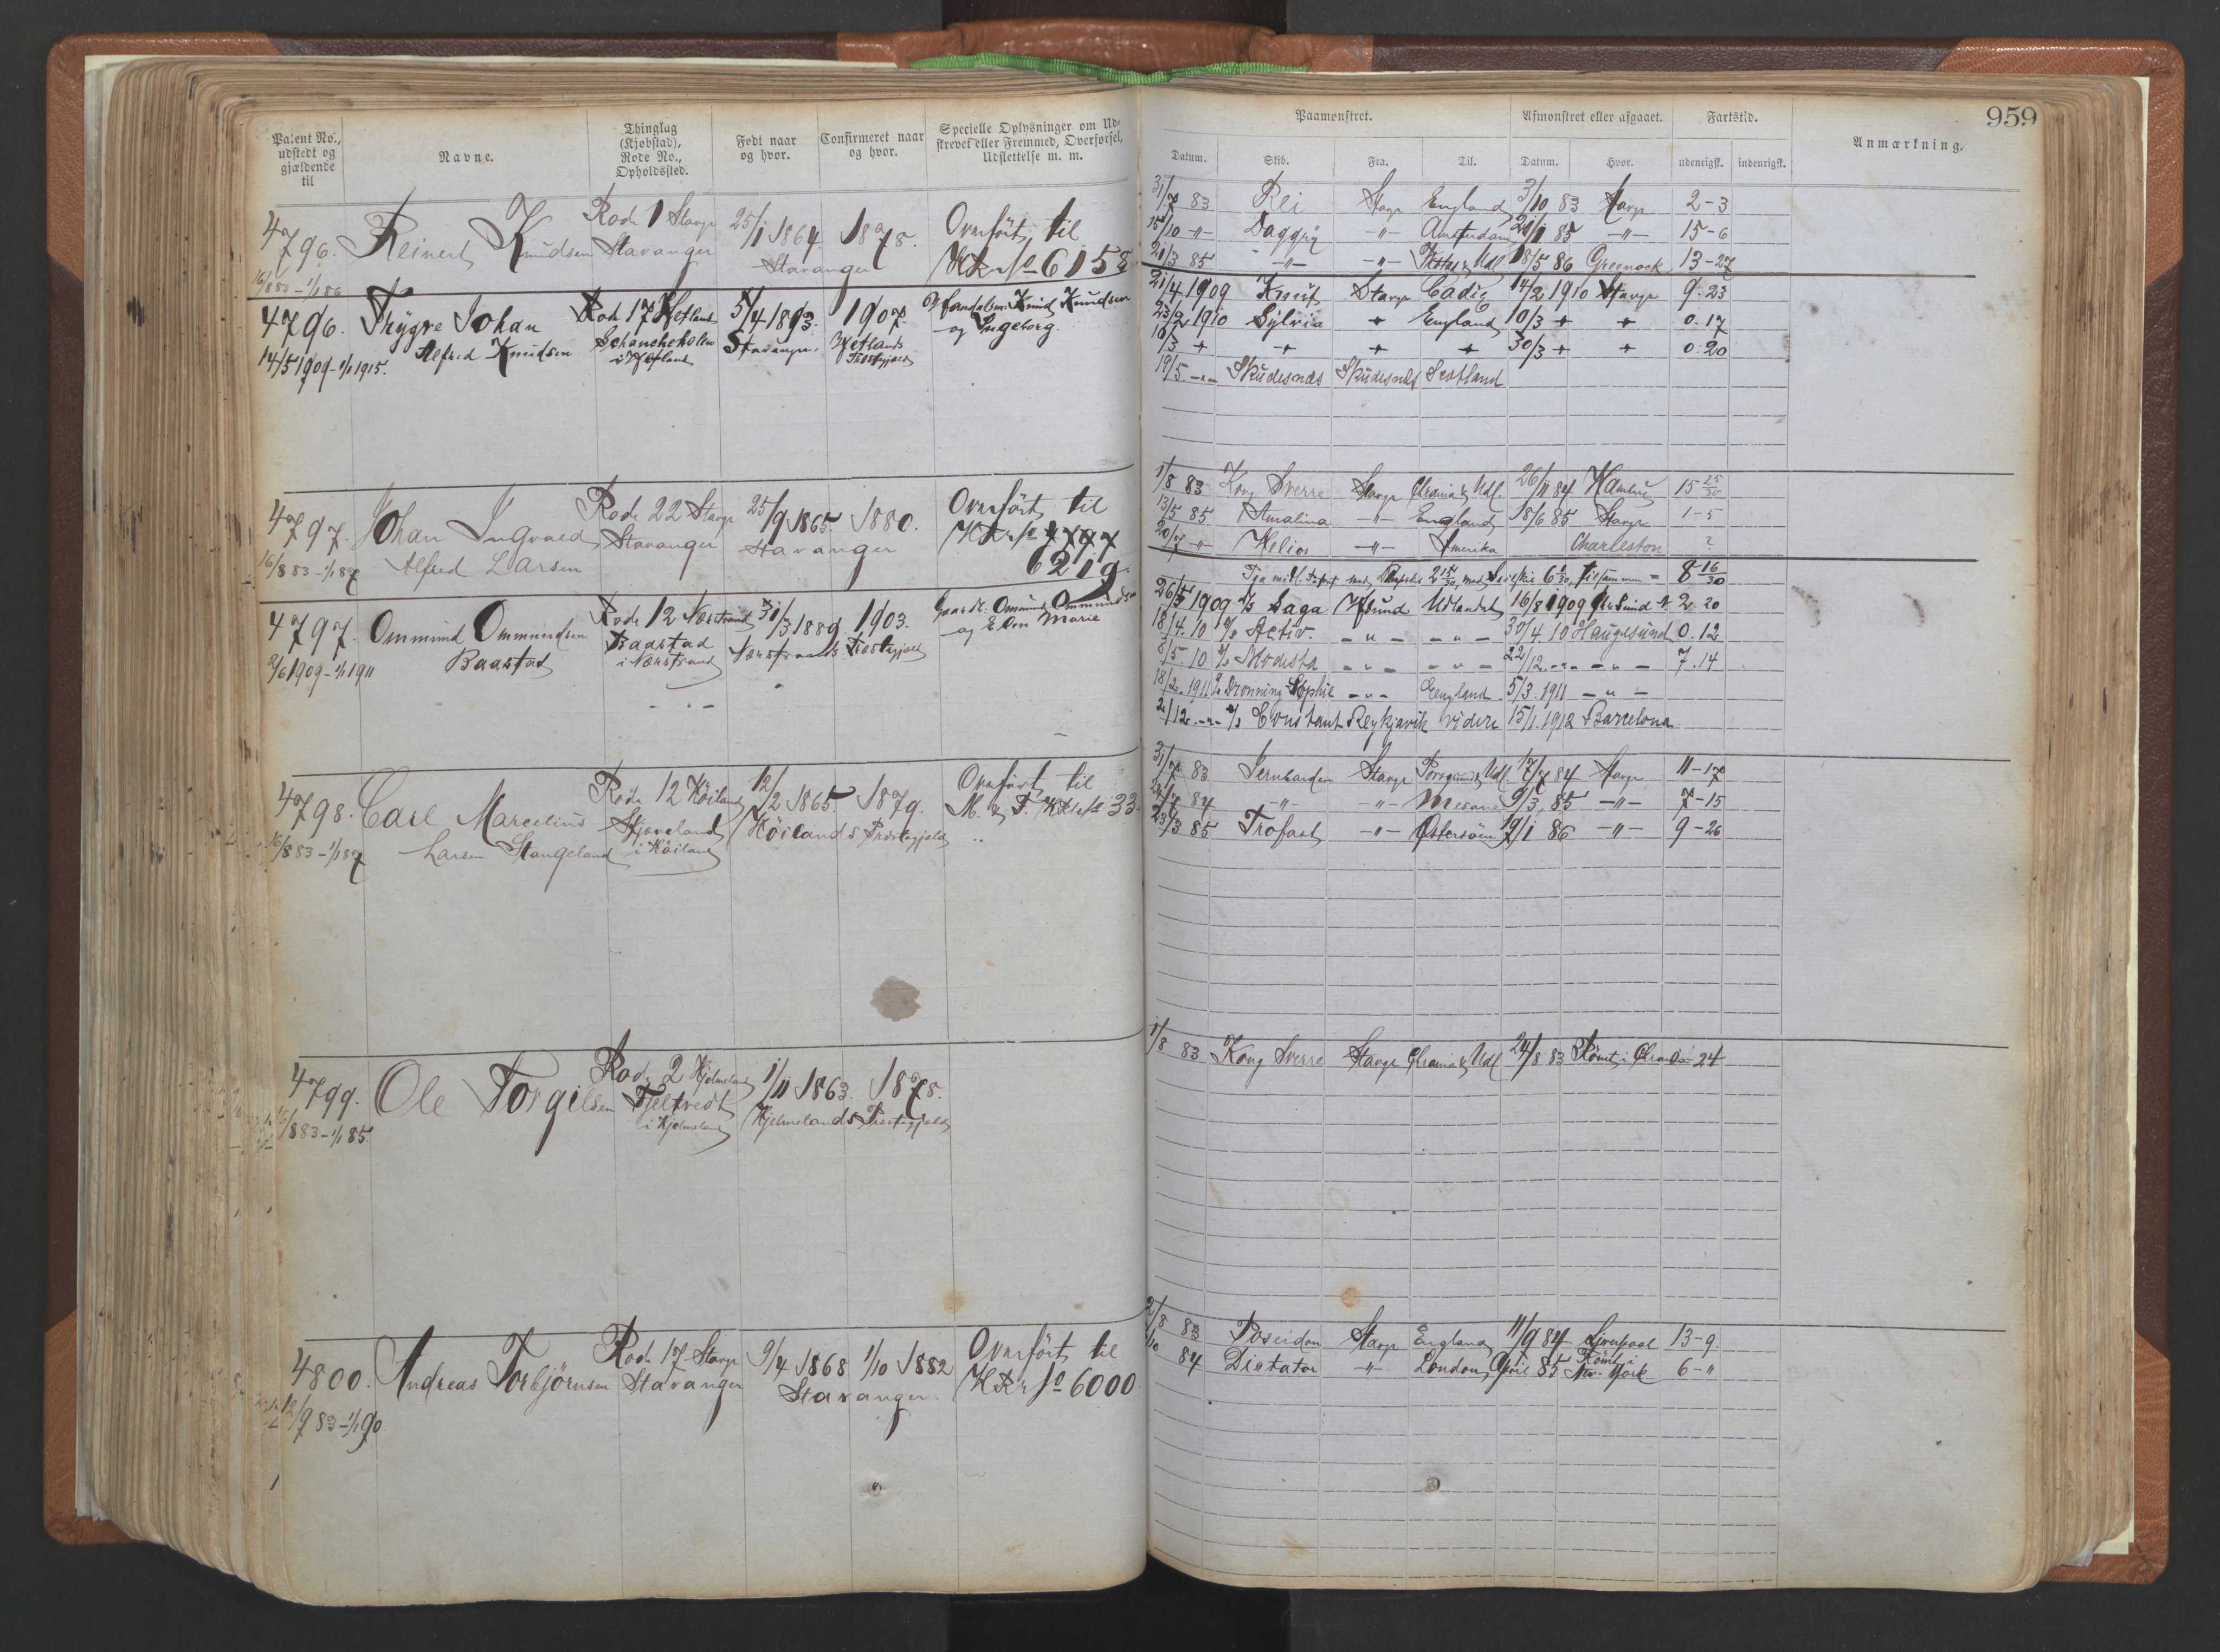 959
Patent No., udstedt og gjældende til
Navne.
Thinglag (Kjøbstad), Rode No., Opholdssted.
Født naar og hvor.
Confirmeret naar og hvor.
Specielle Oplysninger om Udskrevet eller Fremmed, Overførsel, Udslettelse m. m.
Paamønstret.
Afmønstret eller afgaaet.
Fartstid.
Anmærkning.
Datum. Skib. Fra. Til. Datum. Hvor. udenrigsk. indenrigsk.
4796. Reinert Knudsen Rode 1 Stavgr 25/1 1864 1878. Overført til
Stavanger Stavanger
16/8 83 - 1/1 86
31/7 83 Rei Stavgr England 3/10 83 Stavgr 2-3
15/10 -"- Daggry -"- Amsterdam 85 -"- 15-6
21/3 85 -"- -"- Udl 18/5 86 Greenock 13-27
4796. Trygve Johan Rode 17 Hetland 5/4 1893. 1907. Knud Knudsen
Alfred Knudsen i Hetland Stavanger. Hetlands Præstegjæld og Ingeborg.
14/5 1909 - 1/1 1915.
21/4 1909 Knut Stavgr Cadiz 14/2 1910 Stavgr 9. 23
23/2 1910 Sylvia + England 10/3 + + 0. 17
10/3 + + + + 30/3 + + 0. 20
19/5. -"- Skudesnæs Skudesnæs Scotland
4797. Johan Ingvald Rode 22 Stavgr 25/9 1865. 1880. Overført til
Alfred Larsen Stavanger Stavanger 4797
16/8 83 - 1/1 87 6219.
1/8 83 Kong Sverre Stavgr Chrania & Udl. 26/11 84 15 25/30
13/5 85 Amalina -"- England 18/6 85 Stavgr 1-5
20/7 -"- Helios -"- Amerika Charleston ?
4797. Ommund Ommundsen Rode 12 Nærstrand 31/3 1889. 1903. Ommund Ommundsen
Baastad Baastad Nærstrands Præstegjæld og Ellen Marie
2/6 1909 - 1/1 1911 i Nærstrand
tilsammen = 8 16/30
26/5 1909 Saga Hsund Udlandet 16/8 1909 2. 20
18/4. 10 Activ. -"- -"- 30/4 10 Haugesund 0. 12
8/5. 10 Modesta -"- -"- 22/12 -"- -"- 7. 14
18/2. 1911 Dronning Sophie -"- England 5/3. 1911 -"-
2/12. -"- Constant Reykjavik videre 15/1. 1912 Barcelona
4798. Carl Marcelius Rode 12 Höiland 12/2 1865. 1879. Overført til
Larsen Stangeland i Höiland Höilands Præstegjæld M. & F. 33
16/8 83 - 1/1 87
31/7 83 Jernbarden Stavgr Porsgrund & Udl. 17/7 84 Stavgr 11-17
24/7 84 -"- -"- 9/3 85 -"- 7-15
23/3 85 Trofast -"- Østersöen 19/1 86 -"- 9-26
4799. Ole Torgilsen Rode 2 Hjelmeland 1/11 1863. 1878.
i Hjelmeland Hjelmelands Præstegjæld
16/8 83 - 1/1 85.
1/8 83 Kong Sverre Stavgr Chrania & Udl 24/8 83 Römt i Chrania - 24
4800. Andreas Torbjörnsen Rode 17 Stavgr 9/4 1868 1/10 1882 Overført til
Stavanger Stavanger. 6000
12/9 83 - 1/1 90
2/8 83 Poseidon Stavgr England 11/9 84 Liverpool 13-9.
84 Dictator -"- London April 85 Römt i New York 6-"